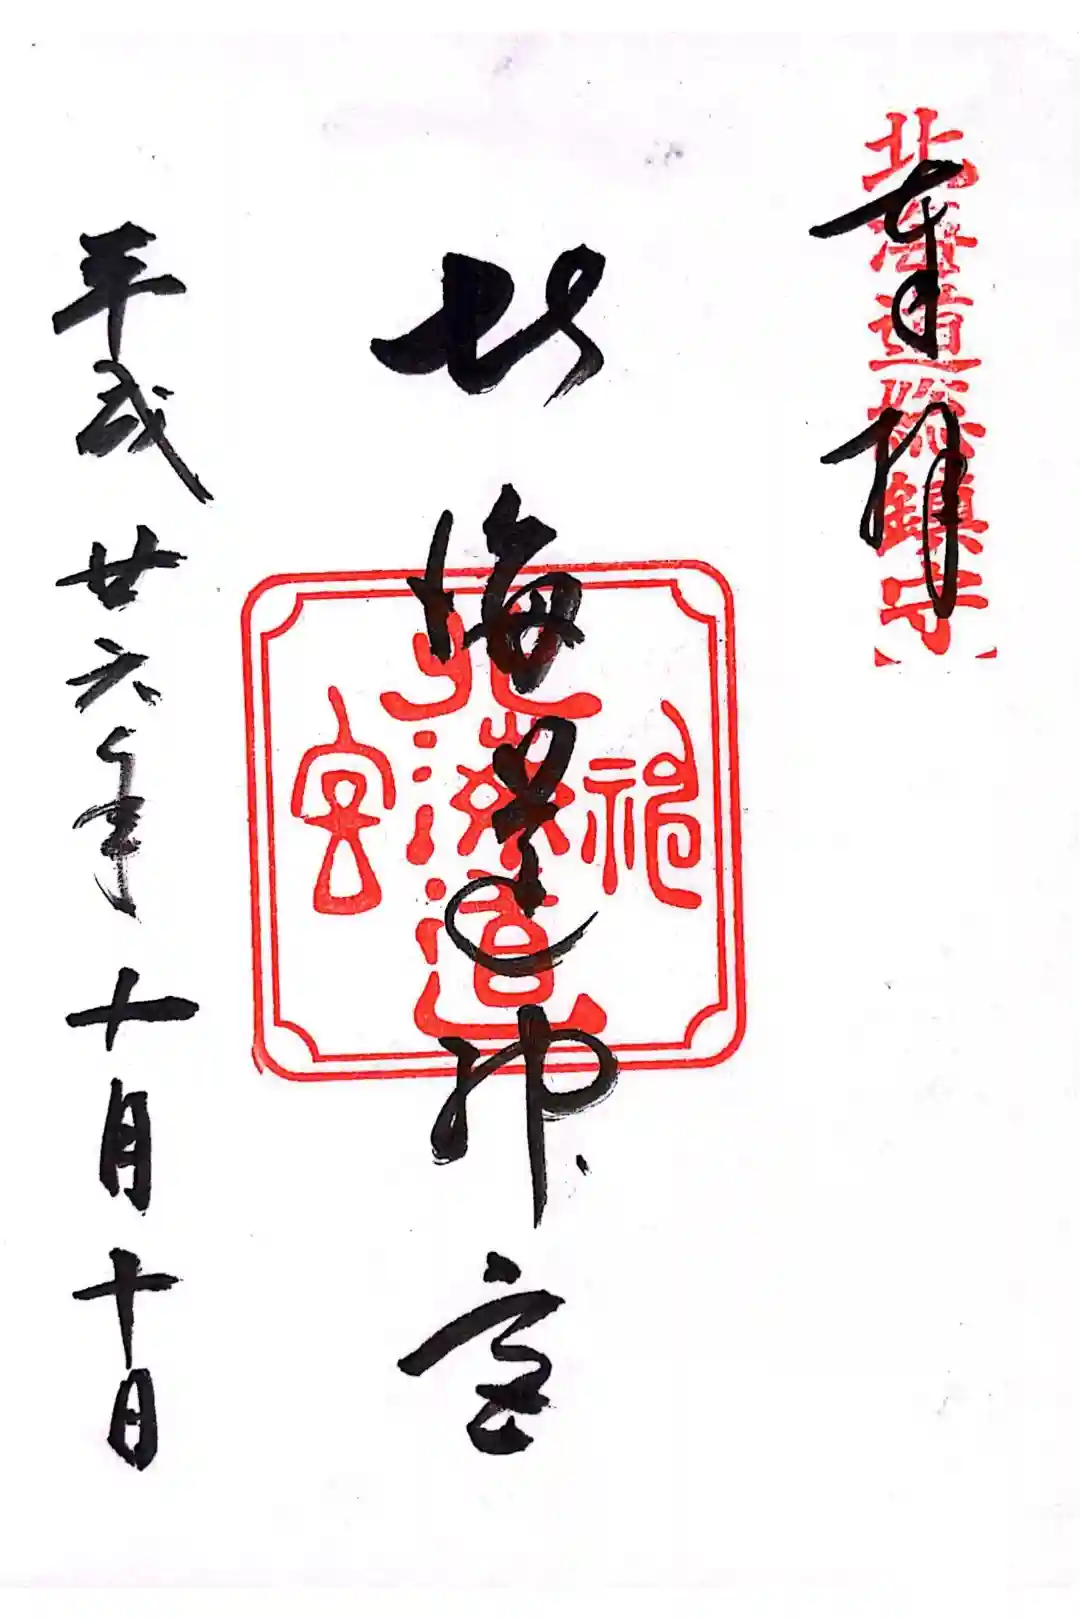 北海道総鎮守
奉拝
北海道神宮
神
北海道
宮
平成廿六年十月十日